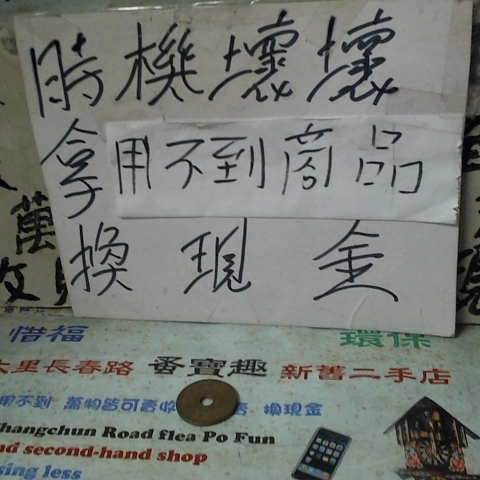 時機壞壞
拿用不到商品
換現金
萬
收
惜福 環保
大里長春路 蚤寶趣 新舊二手店
用不到 萬物皆可 收 換現金
Changchun Road flea Po Fun
and second-hand shop
sing less